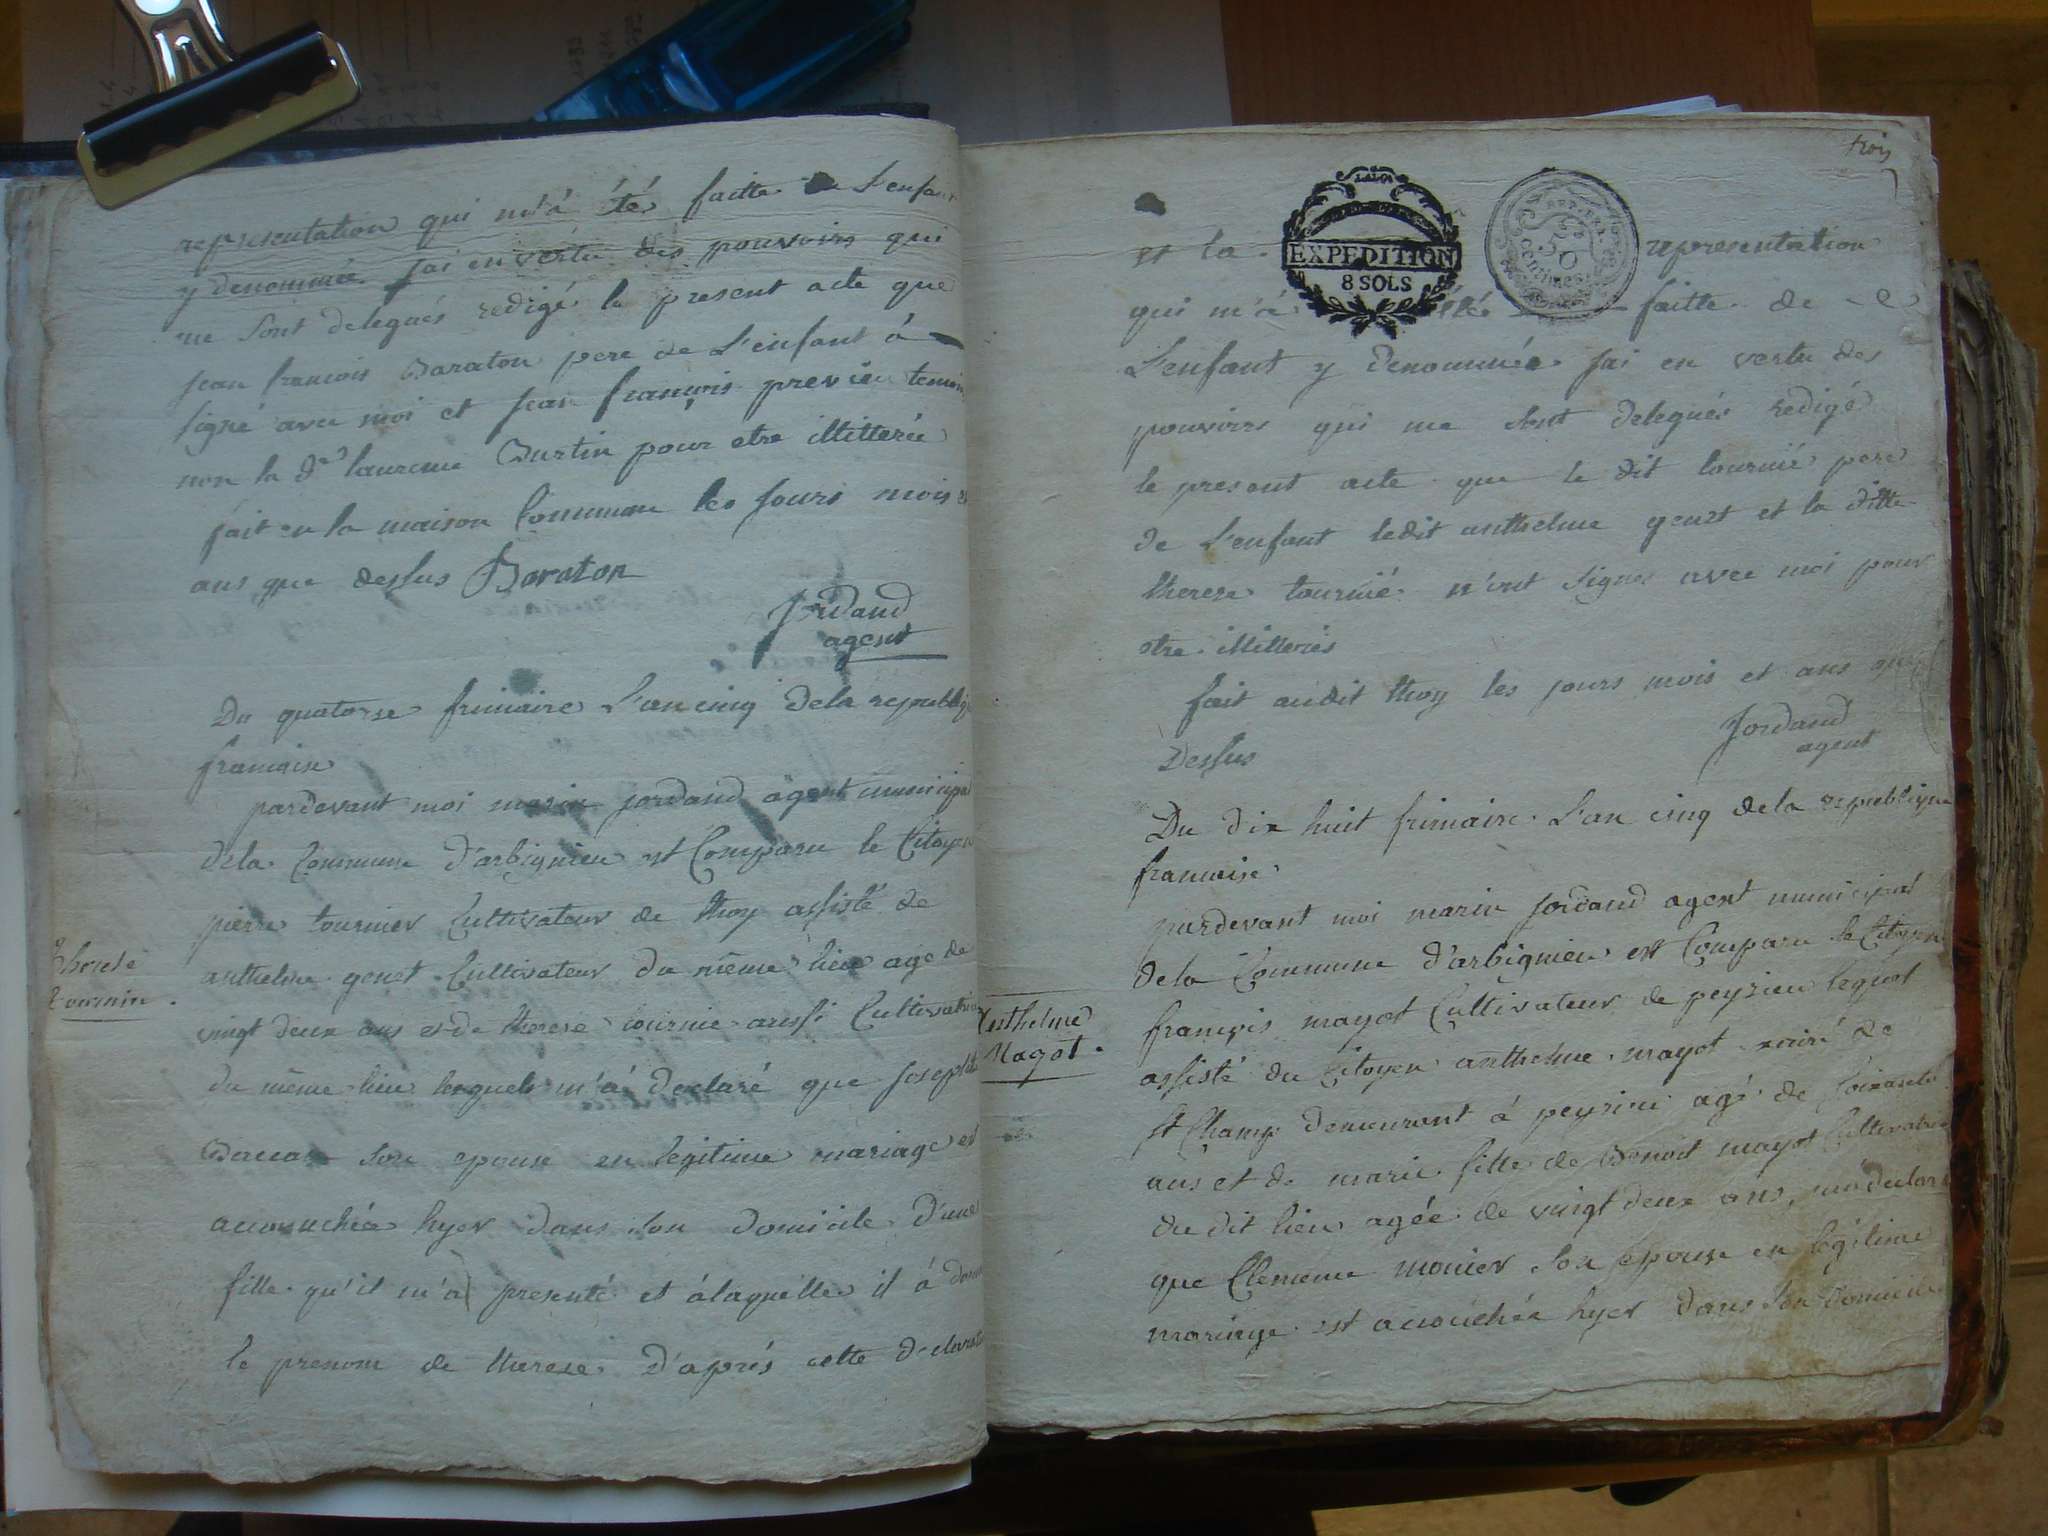 representation qui m'a été faitte de L'enfant
y denommée jai en vertu des pouvoirs qui
me sont delegués redigé le present acte que
jean francois Baraton pere de L'enfant à
signé avec moi et jean françois previeu temoin
non la d.e laurence Burtin pour etre illitterée
fait en la maison Commune les jours mois et
ans que dessus Baraton
Jordand
agent
Du quatorse frimaire L'an cinq de la republique
francaise
pardevant moi marin jordand agent municipal
de la Commune d'arbignieu est Comparu le Citoyen
pierre tournier Cultivateur de thoy assisté de
anthelme genet Cultivateur du même lieu agé de
Therese
Tournié.
vingt deux ans et de therese tournié aussi Cultivatrice
du même lieu lesquels m'a declaré que josephte
son epouse en legitime mariage est
accouchée hyer dans son domicile d'une
fille qu'il m'a presenté et à laquelle il à donné
le prenom de therese d'aprés cette declaration
trois
et la representation
EXPEDITION
8 SOLS
50
Centimes
qui m'à été faitte de
L'enfant y denommée jai en vertu des
pouvoirs qui me sont delegués redigé
le present acte que le dit tournié pere
de L'enfant ledit anthelme genet et la ditte
therese tournié n'ont signés avec moi pour
etre illitterés
fait audit thoy les jours mois et ans que
Dessus
Jordand
agent
Du dix huit frimaire L'an cinq de la republique
francaise
pardevant moi marin jordand agent municipal
de la Commune d'arbignieu est Comparu le Citoyen
Anthelme
Magot.
françois mayot Cultivateur de peyzieu lequel
assisté du Citoyen anthelme mayot curé de
St Champ demeurant à peyzieu agé de soixante
ans et de marie fille de Benoit mayot Cultivatrice
du dit lieu agée de vingt deux ans, m'a declaré
que Clemence monier son epouse en légitime
mariage est accouchée hyer dans son domicile